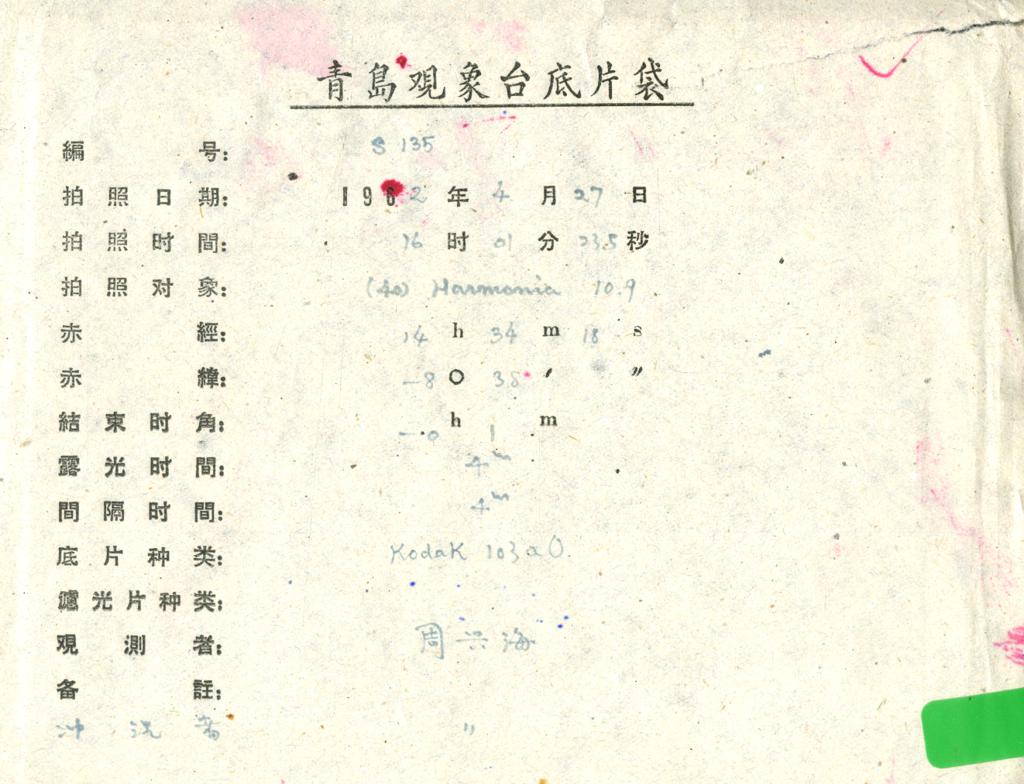 青島观象台底片袋
編号: S 135
拍照日期: 1962年4月27日
拍照时間: 16时01分23.5秒
拍照对象: (40) Harmonia 10.9
赤經: 14h 34m 18s
赤緯: -8° 38′ ″
結束时角: -0h 1m
露光时間: 4m
間隔时間: 4m
底片种类: Kodak 103aO.
濾光片种类:
观測者: 周兴海
备註:
冲洗者 〃